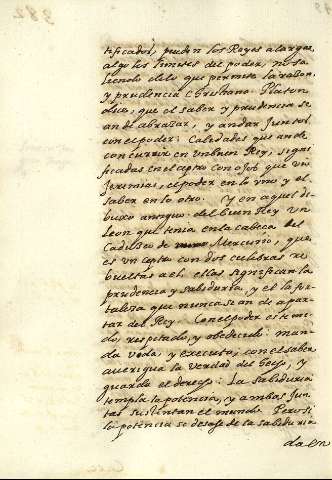 tificados, pueden los Reyes alargar
algo los limites del poder, no sa
liendo de lo que permite la razon,
y prudencia Christiana. Platon
dice, que el saber y prudencia se
an de abraçar, y andar juntos
con el poder: Calidades que an de
concurrir en un buen Rey, signi
ficadas en el ceptro con ojos que vio
Jeremias, el poder en lo uno y el
saber en lo otro. Y en aquel di
buxo antiguo del buen Rey un
leon que tenia en la cabeça del
Caduceo de Mercurio, que
es un ceptro con dos culebras re
bueltas a el. ellas significan la
prudencia y sabiduria, y el la for
taleza que nunca se an de apar
tar del Rey. Con el poder es temi
do, respetado, y obedecido: man
da, veda, y executa, con el saber
averigua la verdad del caso, y
guarda el derecho: La sabiduria
templa la potencia, y ambas jun
tas sustentan el mundo. Pero si
la potencia se desase de la sabiduria
da en